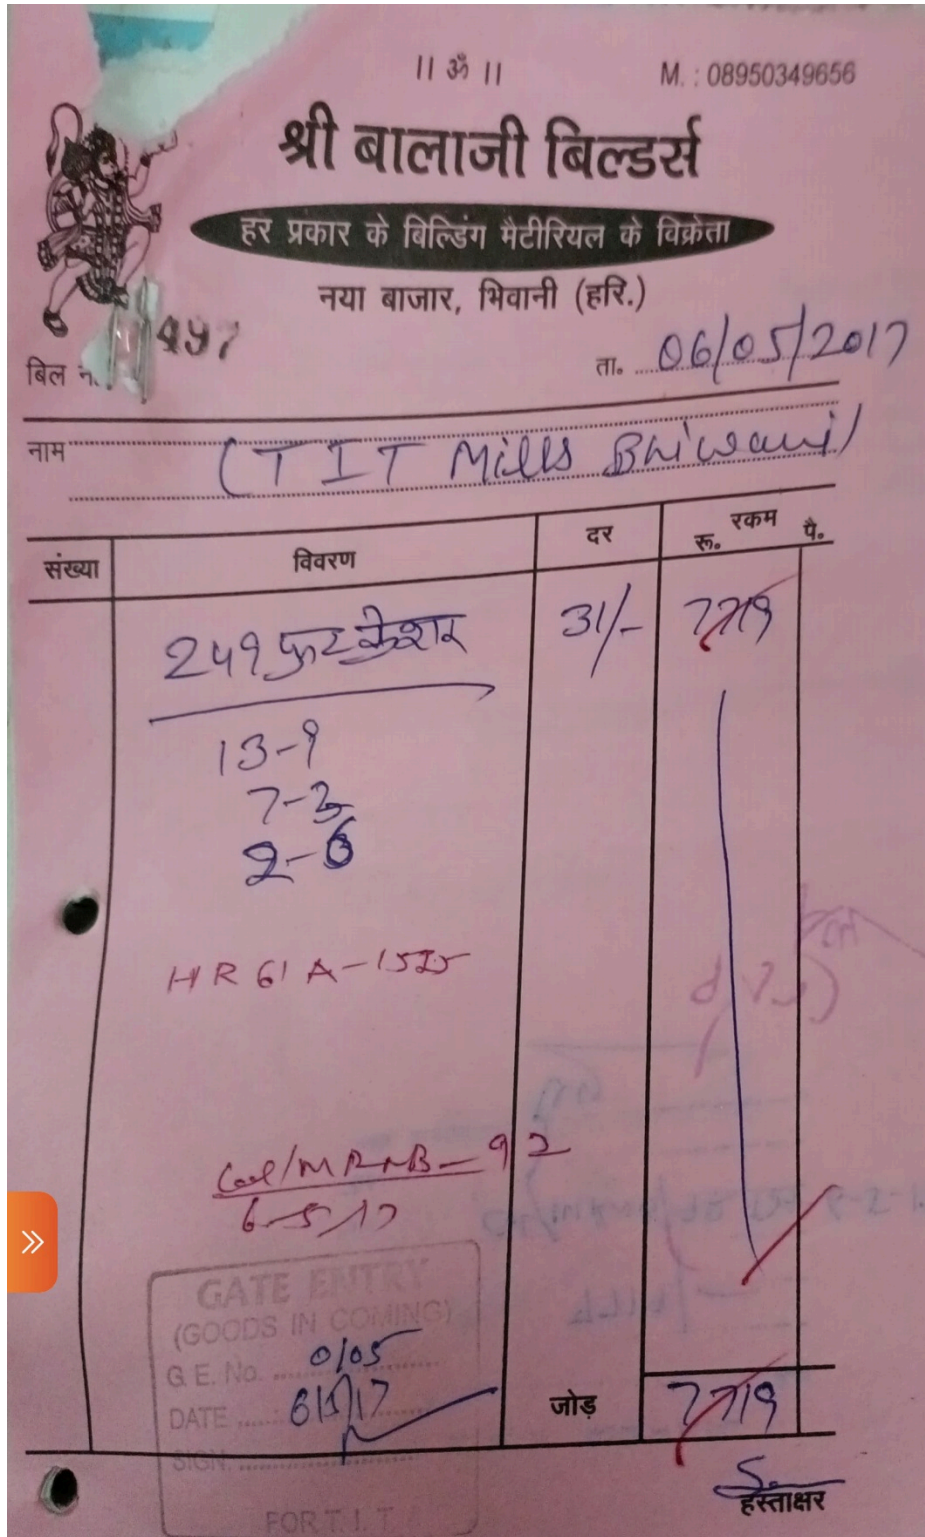 ॥ ॐ ॥ M. : 08950349656
श्री बालाजी बिल्डर्स
हर प्रकार के बिल्डिंग मैटीरियल के विक्रेता
नया बाजार, भिवानी (हरि.)
बिल नं. 497 ता. 06/05/2017
नाम (TIT Mills Bhiwani)
संख्या विवरण दर रकम रू. पै.
249 फुट क्रेशर 31/- 7719
13-9
7-3
2-6
HR 61 A-1525
6-5-17
GATE ENTRY
(GOODS IN COMING)
G.E. No. 0105
DATE 6/5/17
SIGN.
FOR T.I.T
जोड़ 7719
हस्ताक्षर